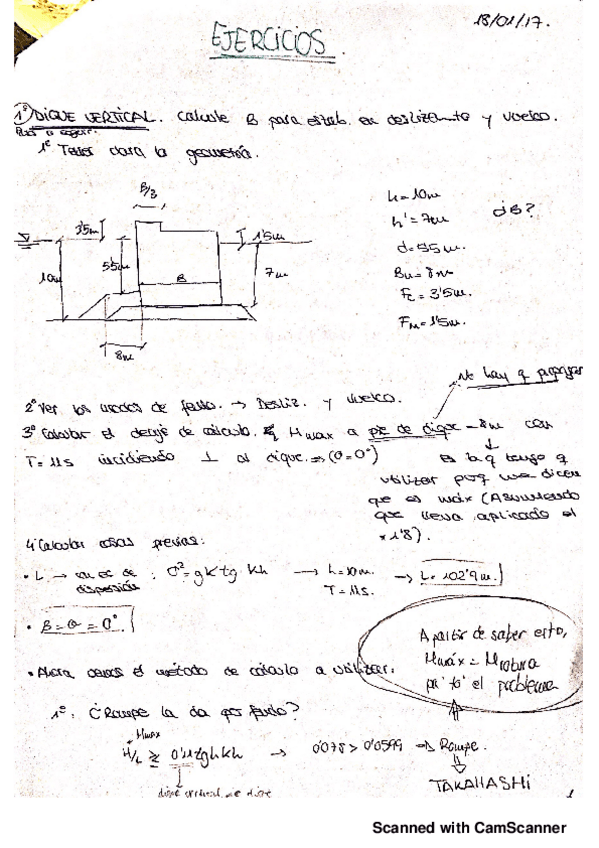 18/01/17.
EJERCICIOS.
1º DIQUE VERTICAL. Calcule B para estab. en deslizamiento y vuelco.
1º Tener clara la geometría.
B/3
3'5m
1'5m
5'5m
10m
B
7m
8m
h = 10m
h' = 7m
d = 5'5m.
Fc = 3'5m.
FM = 1'5m.
d B?
No hay q propagar
2º Ver los modos de fallo. → Desliz. y vuelco.
3º Calcular el oleaje de cálculo. Hmax a pie de dique = 8m con
T = 11s incidiendo ⊥ al dique. ⇒ (θ = 0º)
es la q tengo q
utilizar porq me dicen
que es máx (Asumiendo
que lleva aplicado el
x 1'8).
4º Calcular cosas previas:
• L → en ec de dispersión : σ² = gktg kh → h = 10m. T = 11s. → L = 102'9m.
• B = θ = 0º.
• Ahora vemos el método de cálculo a utilizar:
A partir de saber esto,
Hmáx = Hrotura
pa' to' el problema
1º: ¿Rompe la ola por fondo?
Hmax
H/L ≥ 0'12tghkh → 0'078 > 0'0599 → Rompe.
TAKAHASHI
1
Scanned with CamScanner